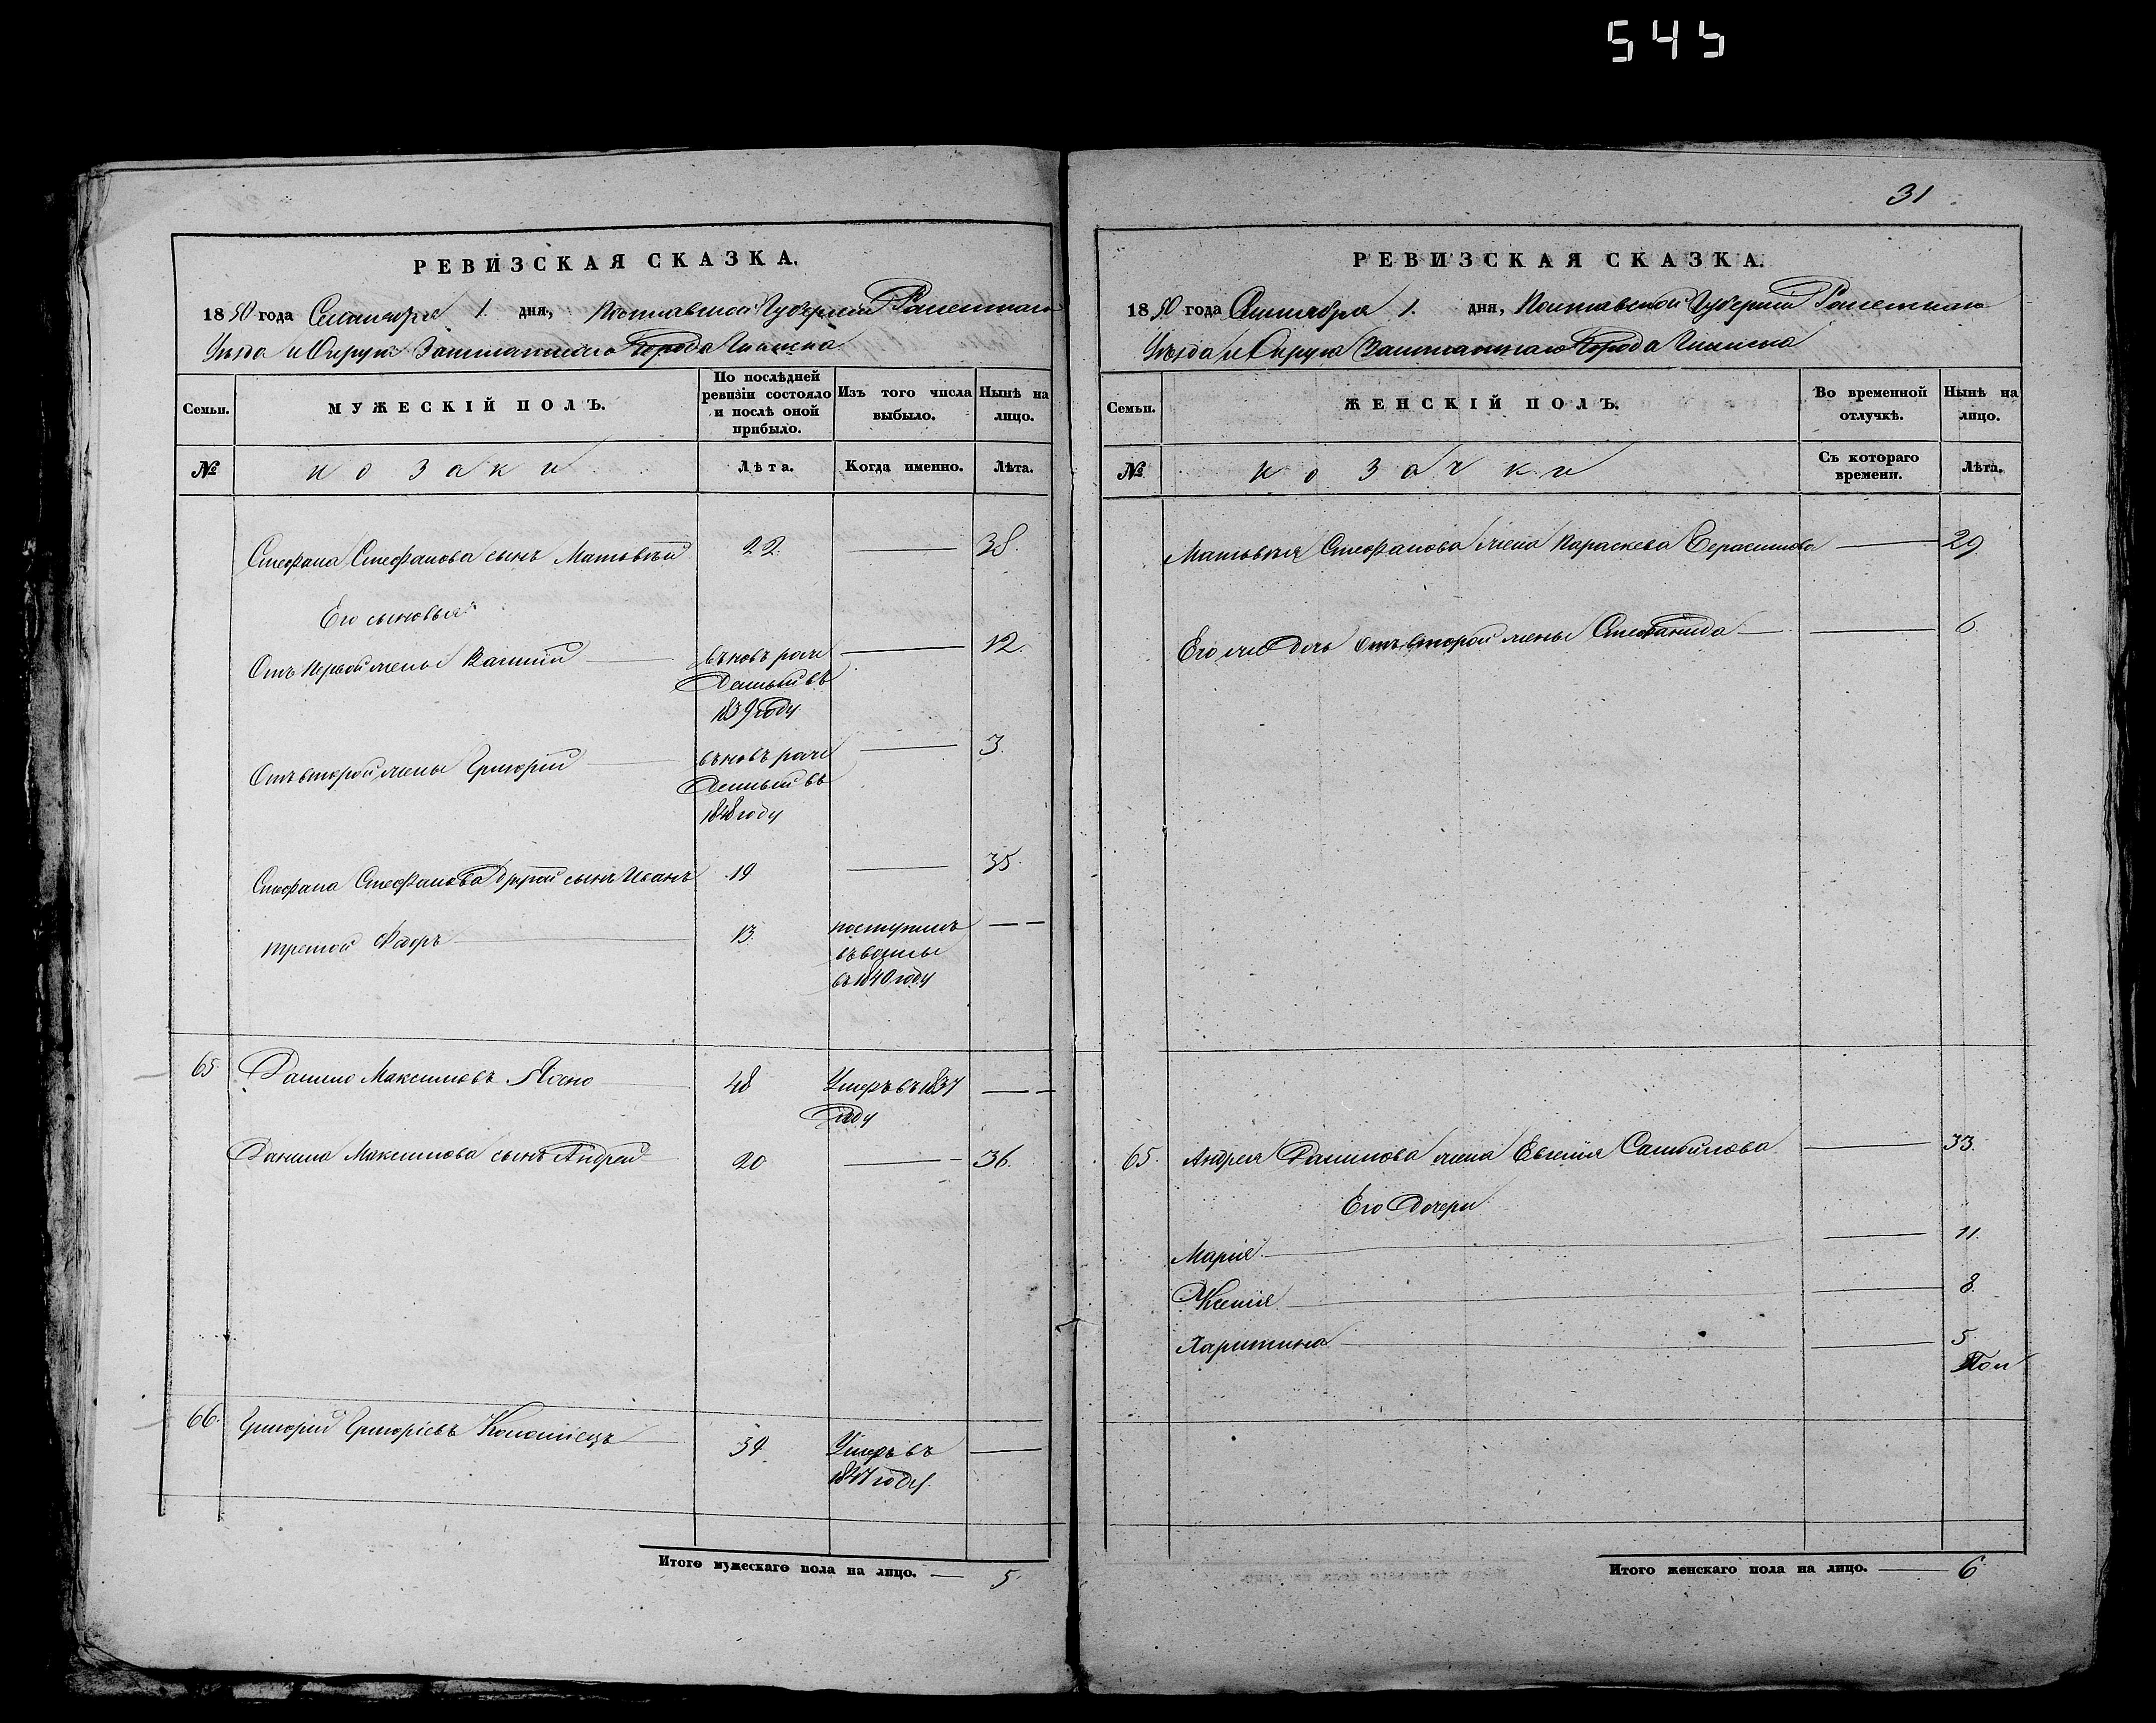 545
РЕВИЗСКАЯ СКАЗКА.
1850 года Сентября 1. дня, Полтавской Губерніи Роменскаго
Уѣзда и Округа Заштатнаго Города Глинска
Семьи.
МУЖЕСКІЙ ПОЛЪ.
По послѣдней ревизіи состояло и послѣ оной прибыло.
Изъ того числа выбыло.
Нынѣ на лицо.
№
козаки
Лѣта.
Когда именно.
Лѣта.
Стефана Стефанова сынъ Матвѣй 22. 38.
Его сыновья
Отъ первой жены 12.
вновь рож
денный въ
1839 году
Отъ второй жены Григорій 3.
вновь рож
денный въ
1848 году
Стефана Стефанова другой сынъ Иванъ 19 35.
третой Федоръ 13.
поступилъ
въ
въ 1840 году
65 Данило Максимовъ 48 Умеръ въ 1837
году
Данила Максимова сынъ Андрей 20 36.
66. Григорій Григорьевъ Коломіецъ 34. Умеръ въ
1847 году.
Итого мужескаго пола на лицо. 5
31
РЕВИЗСКАЯ СКАЗКА.
1850 года Сентября 1. дня, Полтавской Губерніи Роменскаго
Уѣзда и Округа Заштатнаго Города Глинска
Семьи.
ЖЕНСКІЙ ПОЛЪ.
Во временной отлучкѣ.
Нынѣ на лицо.
№
козачки
Съ котораго времени.
Лѣта.
Матвѣя Стефанова жена Параскева Герасимова 29.
Его же дочь отъ второй жены Стефанида 6
65. Андрея Данилова жена Евгенія Самойлова 33.
Его дочери
Марія 11.
Ксенія 8.
Харитина 5
Итого женскаго пола на лицо. 6